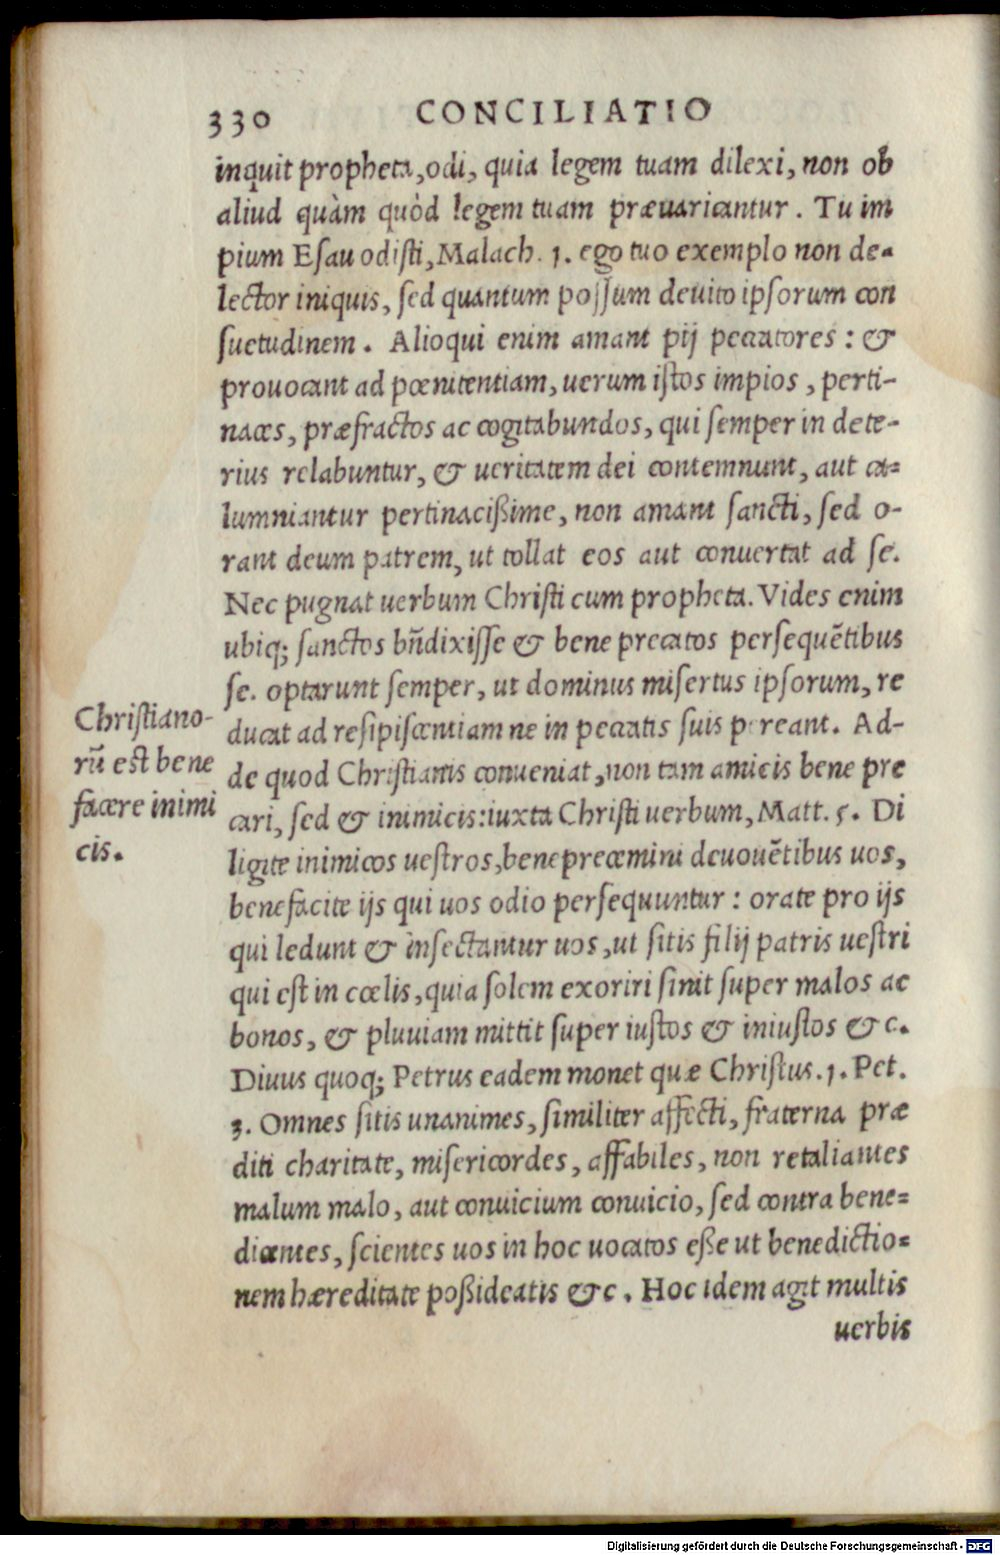 330 CONCILIATIO
inquit propheta, odi, quia legem tuam dilexi, non ob
aliud quàm quòd legem tuam præuaricantur. Tu im
pium Esau odisti, Malach. 1. ego tuo exemplo non de-
lector iniquis, sed quantum possum deuito ipsorum con
suetudinem. Alioqui enim amant pij peccatores: &
prouocant ad pœnitentiam, uerum istos impios, perti-
naces, præfractos ac cogitabundos, qui semper in dete-
rius relabuntur, & ueritatem dei contemnunt, aut ca-
lumniantur pertinacißime, non amant sancti, sed o-
rant deum patrem, ut tollat eos aut conuertat ad se.
Nec pugnat uerbum Christi cum propheta. Vides enim
ubiq; sanctos bñdixisse & bene precatos persequẽtibus
se. optarunt semper, ut dominus misertus ipsorum, re
ducat ad resipiscentiam ne in peccatis suis pereant. Ad-
de quod Christianis conueniat, non tam amicis bene pre
cari, sed & inimicis: iuxta Christi uerbum, Matt. 5. Di
ligite inimicos uestros, benepreceminı deuouẽtibus uos,
benefacite ijs qui uos odio persequuntur: orate pro ijs
qui ledunt & insectantur uos, ut sitis filij patris uestri
qui est in cœlis, quia solem exoriri sinit super malos ac
bonos, & pluuiam mittit super iustos & iniustos &c.
Diuus quoq; Petrus eadem monet quæ Christus. 1. Pet.
3. Omnes sitis unanimes, similiter affecti, fraterna præ
diti charitate, misericordes, affabiles, non retaliantes
malum malo, aut conuicium conuicio, sed contra bene-
dicentes, scientes uos in hoc uocatos eße ut benedictio-
nem hæreditate poßideatis &c. Hoc idem agit multis
uerbis
Christiano-
rũ est bene
facere inimi
cis.
Digitalisierung gefördert durch die Deutsche Forschungsgemeinschaft - DFG